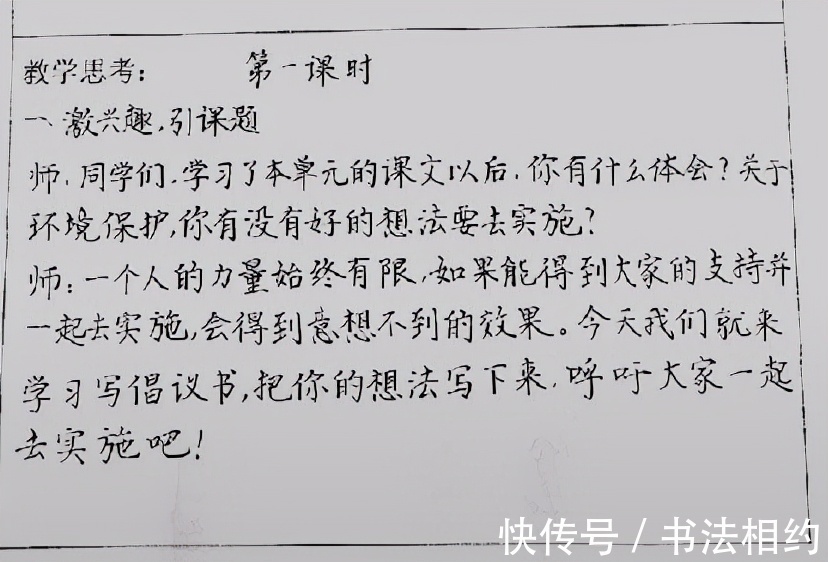 教学思考： 第一课时
一、激兴趣，引课题
师：同学们，学习了本单元的课文以后，你有什么体会？关于
环境保护，你有没有好的想法要去实施？
师：一个人的力量始终有限，如果能得到大家的支持并
一起去实施，会得到意想不到的效果。今天我们就来
学习写倡议书，把你的想法写下来，呼吁大家一起
去实施吧！
快传号 / 书法相约